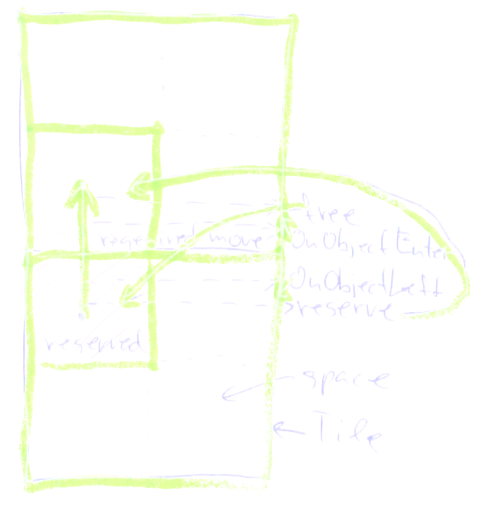 free
move
OnObjectEnter
OnObjectLeft
reserve
reserved
space
Tile